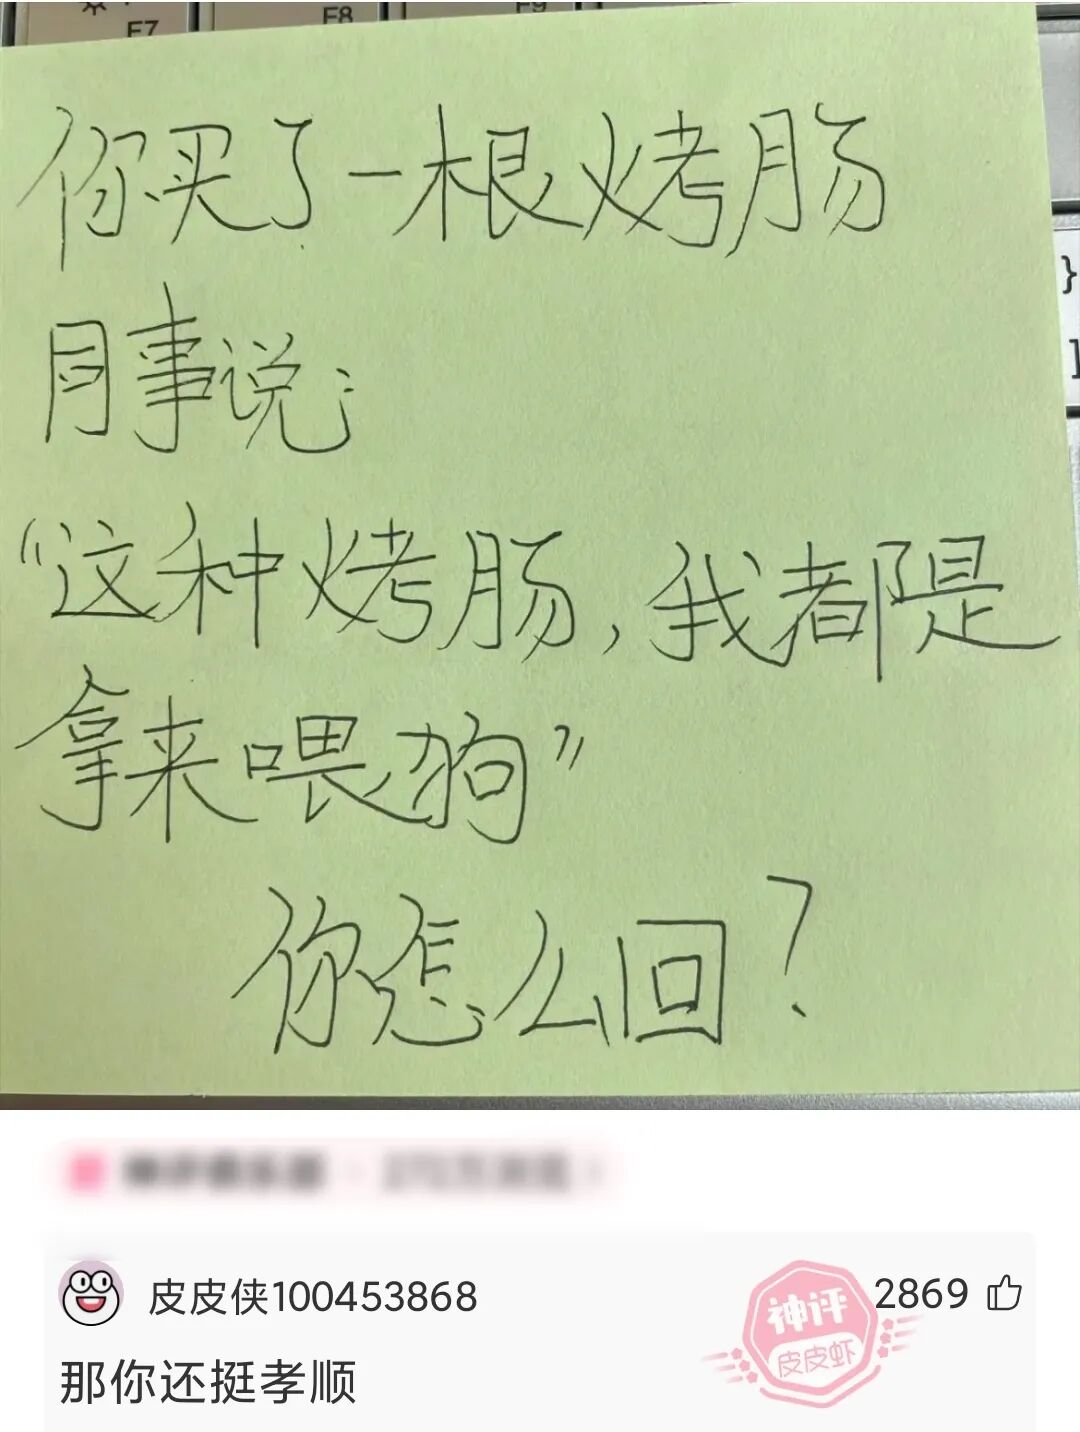 F7 F8 F9
你买了一根烤肠
}
同事说:
]
“这种烤肠,我都是
拿来喂狗”
你怎么回?
皮皮侠100453868
神评
皮皮虾
2869
那你还挺孝顺